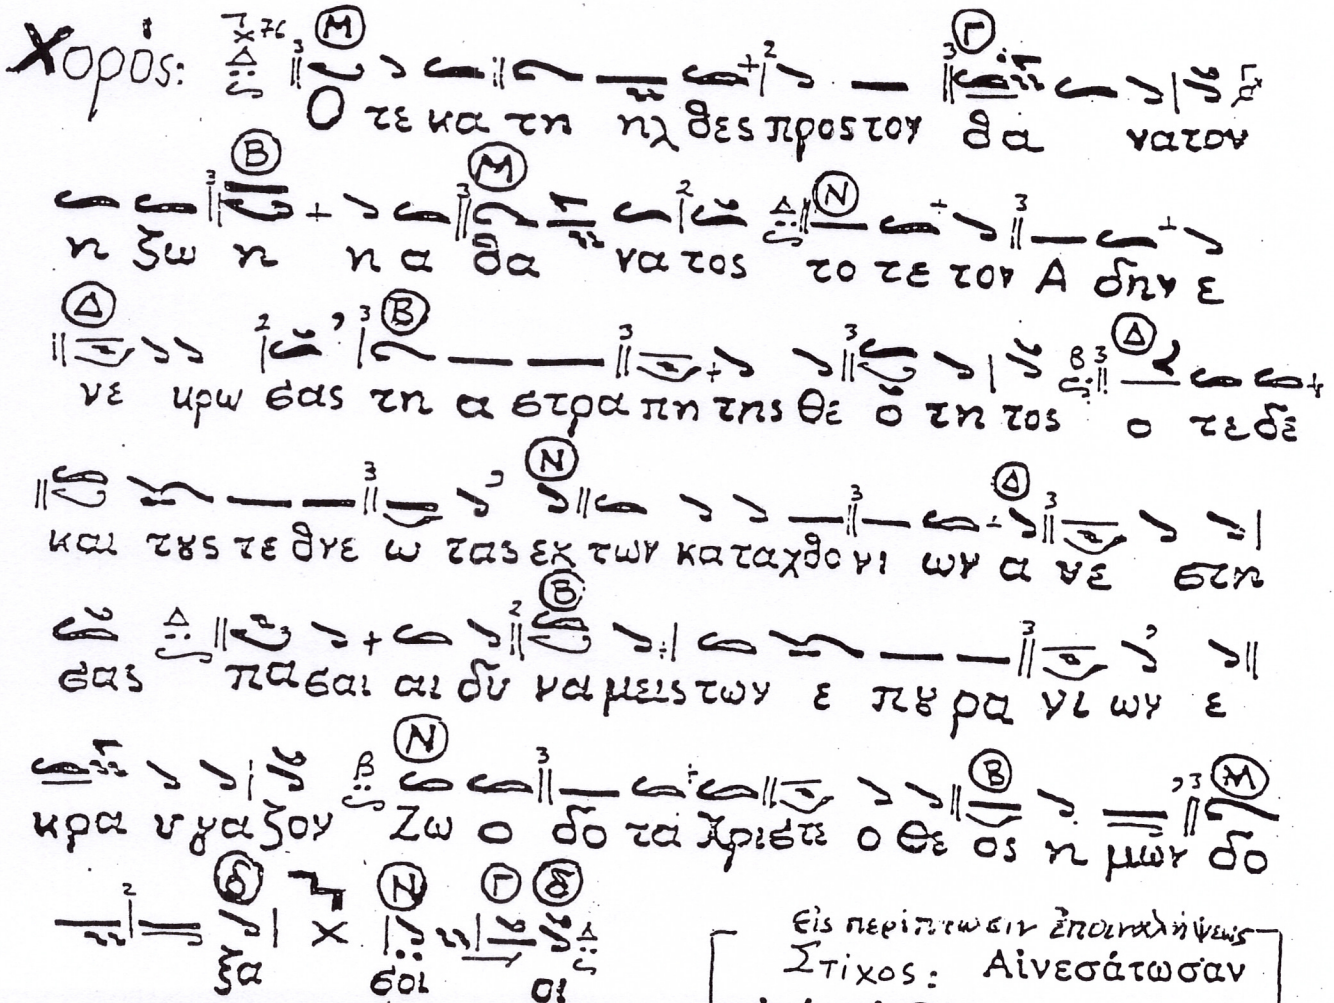 Χορός:
Ο τε κα τη ηλ θες προς τον θα νατον
η ζω η η α θα να τος το τε τον Α δην ε
νε κρω σας τη α στρα πη της θε ό τη τος ο τε δε
και τȣς τε θνε ω τας εκ των κα ταχθο νι ων α νε στη
σας πα σαι αι δυ να μεις των ε πȣ ρα νι ων ε
κρα υ γα ζον Ζω ο δο τα Χριστε ο Θε ος η μων δο
ξα σοι οι
Εἰς περίπτωσιν ἐπαναλήψεως
Στίχος: Αἰνεσάτωσαν